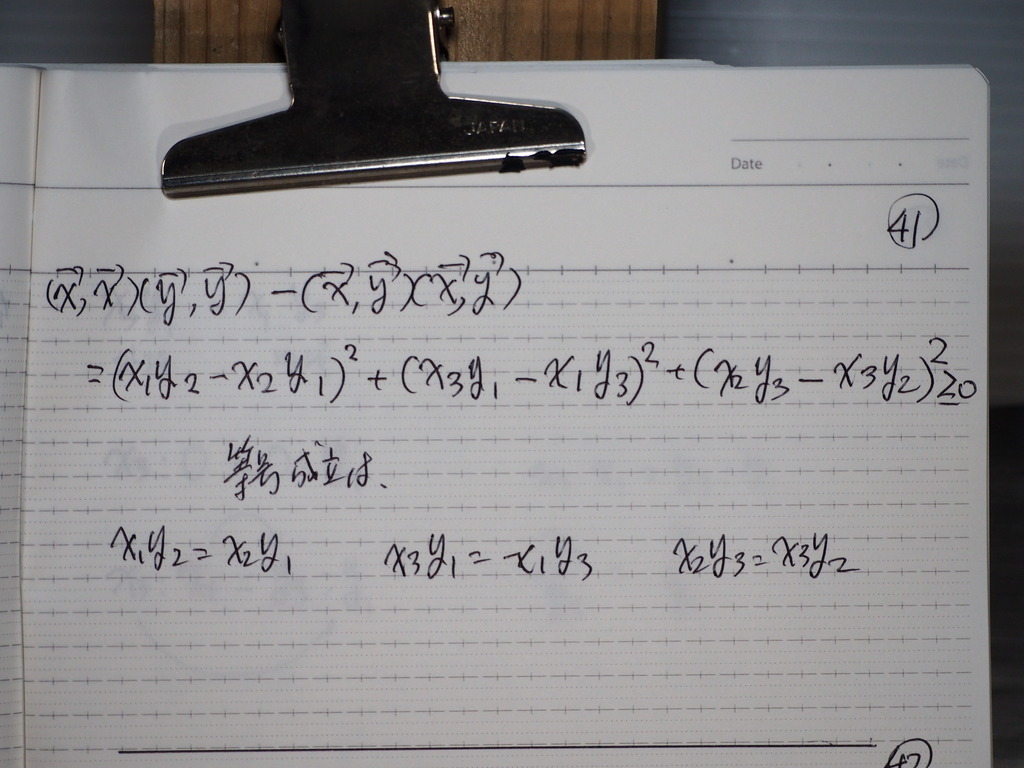 JAPAN
Date
41
(x⃗, x⃗)(y⃗, y⃗) - (x⃗, y⃗)(x⃗, y⃗)
= (x₁y₂ - x₂y₁)² + (x₃y₁ - x₁y₃)² + (x₂y₃ - x₃y₂)² ≥ 0
等号成立は、
x₁y₂ = x₂y₁ x₃y₁ = x₁y₃ x₂y₃ = x₃y₂